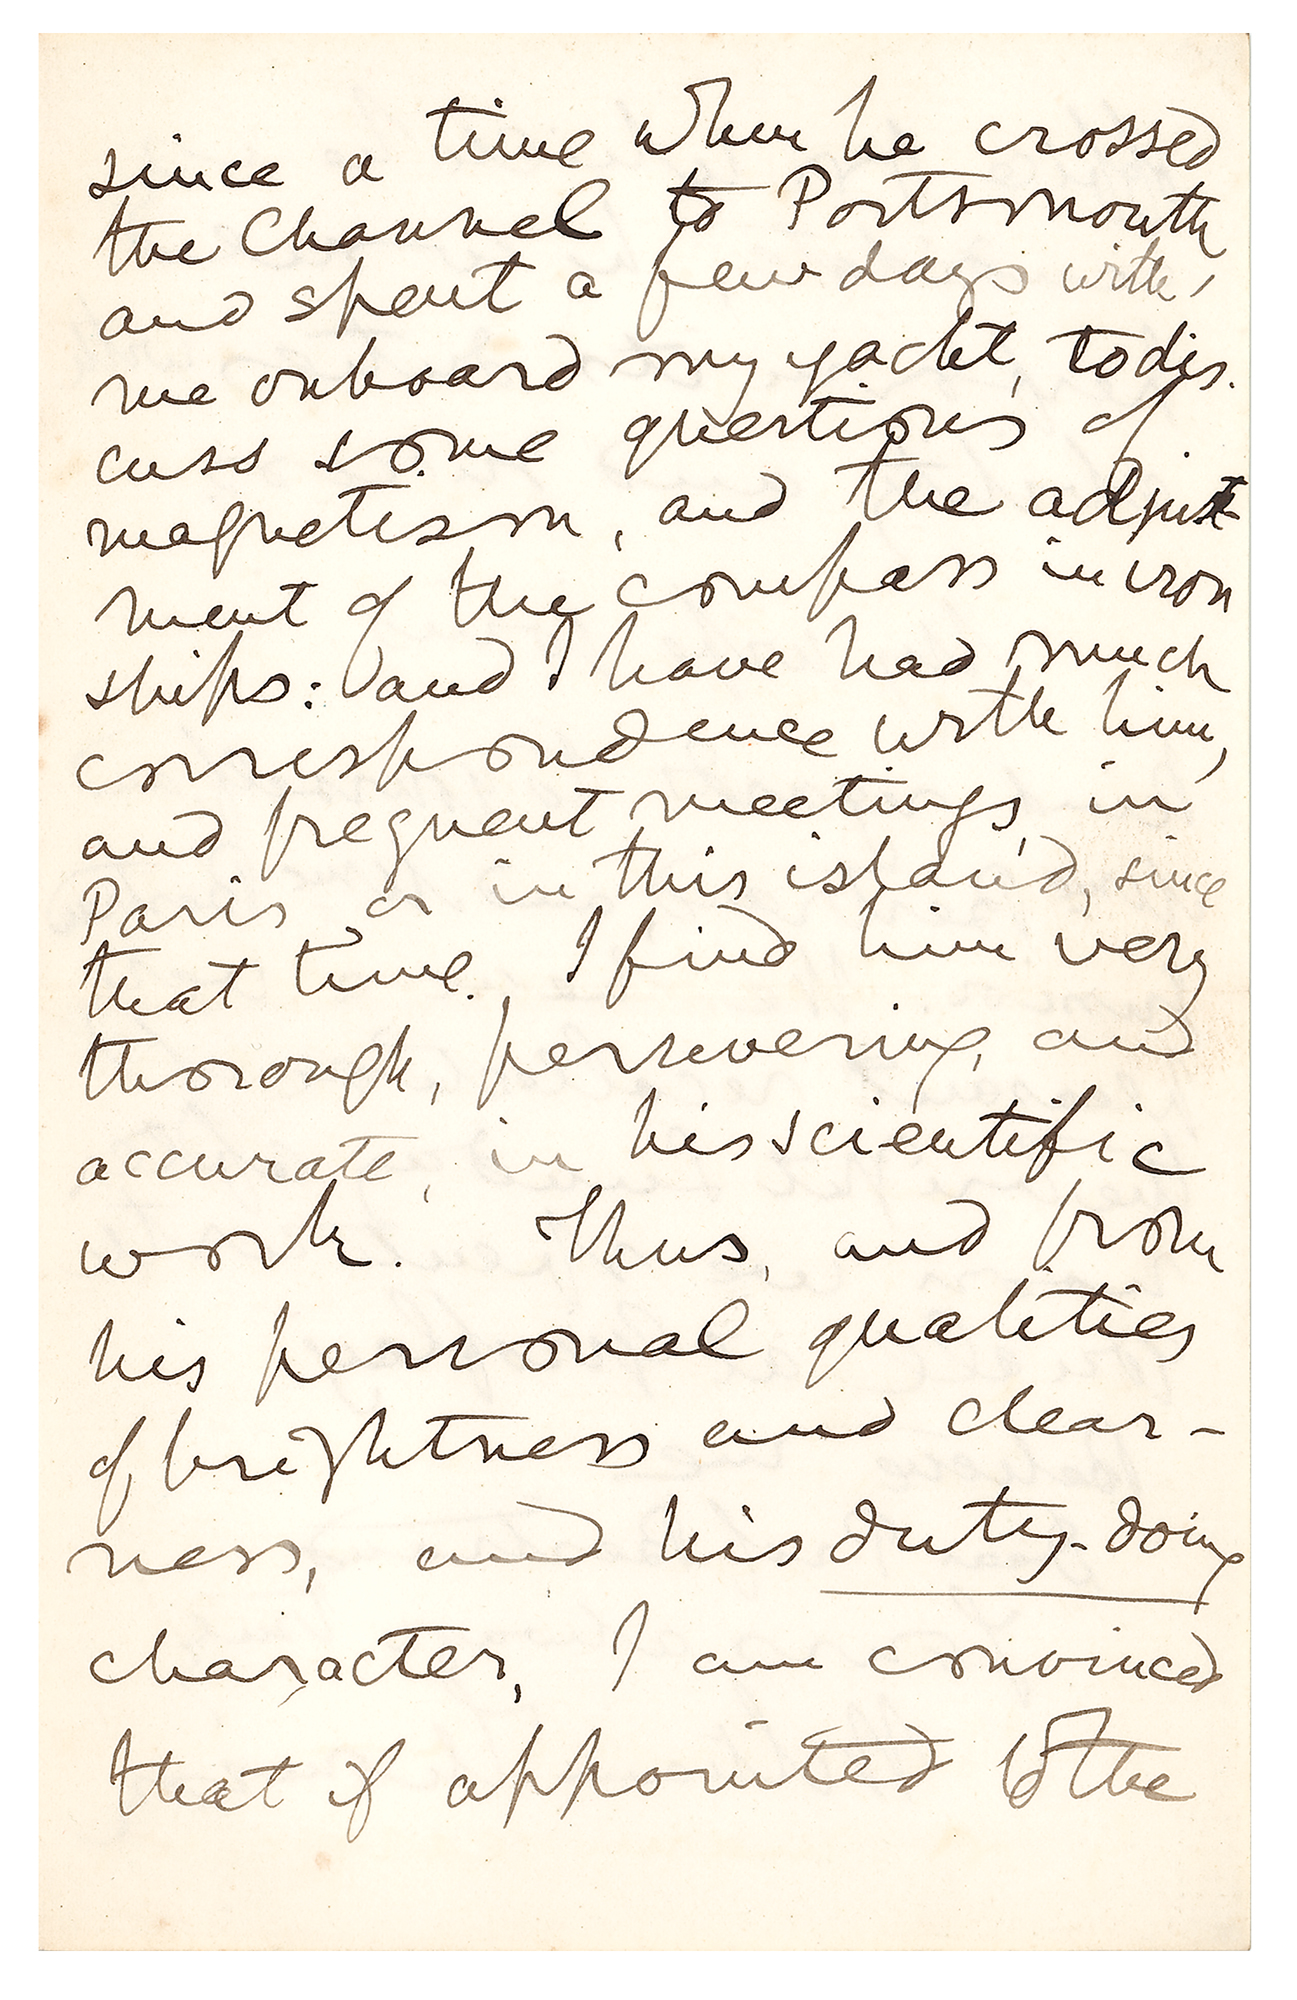 since a time when he crossed
the Channel to Portsmouth
and spent a few days with
me onboard my yacht, to dis.
cuss some questions of
magnetism, and the adjust
ment of the compass in iron
ships: and I have had much
correspondence with him,
and frequent meetings, in
Paris or in this island, since
that time. I find him very
thorough, persevering, and
accurate, in his scientific
work. Thus, and from
his personal qualities
of brightness and clear-
ness, and his duty-doing
character, I am convinced
that if appointed to the